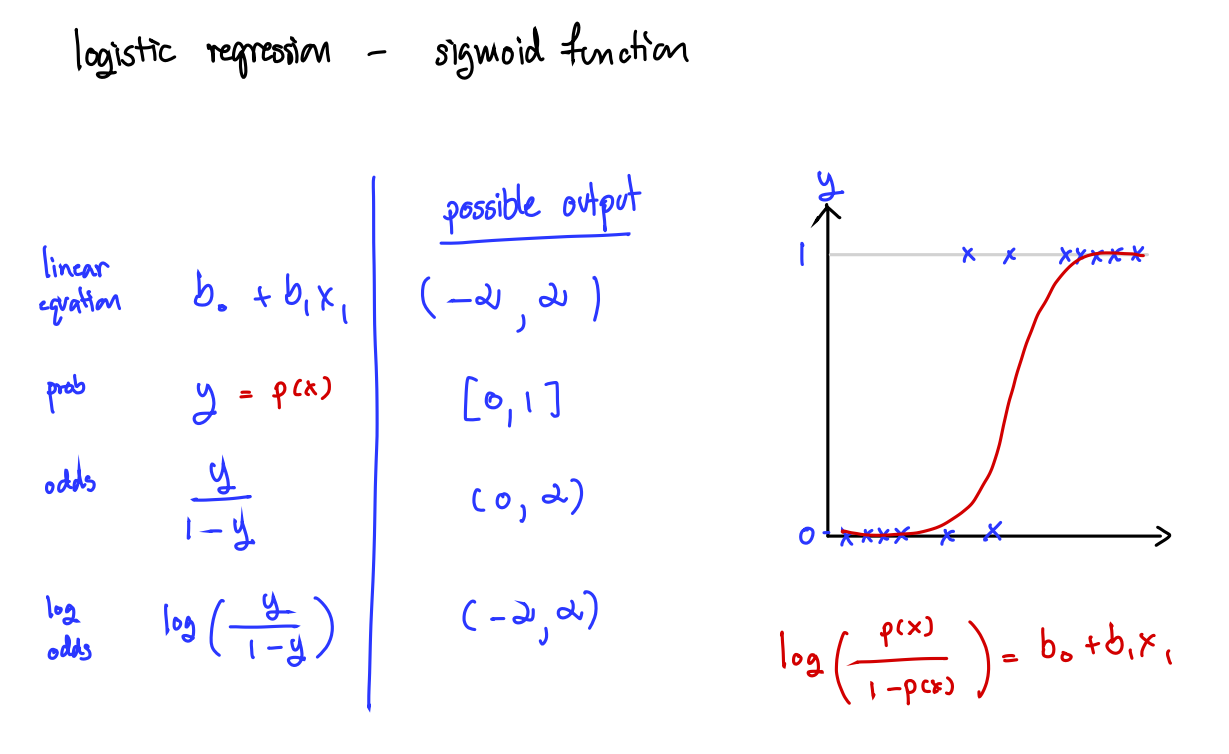 logistic regression - sigmoid function
possible output
linear equation b₀ + b₁x₁ (-∞, ∞)
prob y = p(x) [0, 1]
odds y/(1-y) (0, ∞)
log odds log(y/(1-y)) (-∞, ∞)
y
1
0
log(p(x)/(1-p(x))) = b₀ + b₁x₁